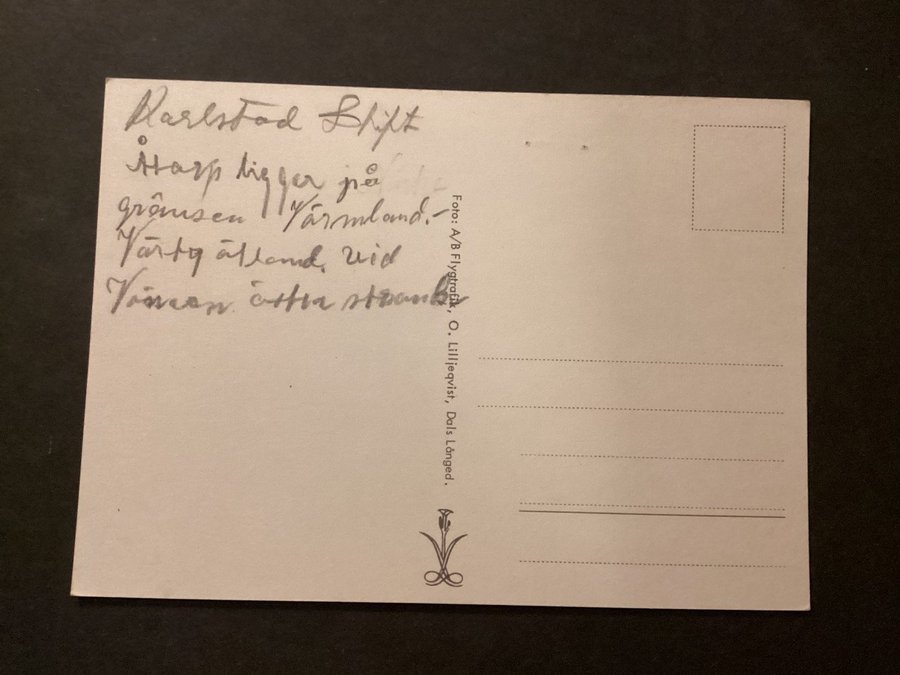 Karlstad Stift
Åtorp ligger på
gränsen Värmland.-
Västg ötland. vid
Vänern östra strand
Foto: A/B Flygtrafik, O. Lilljeqvist, Dals Långed.